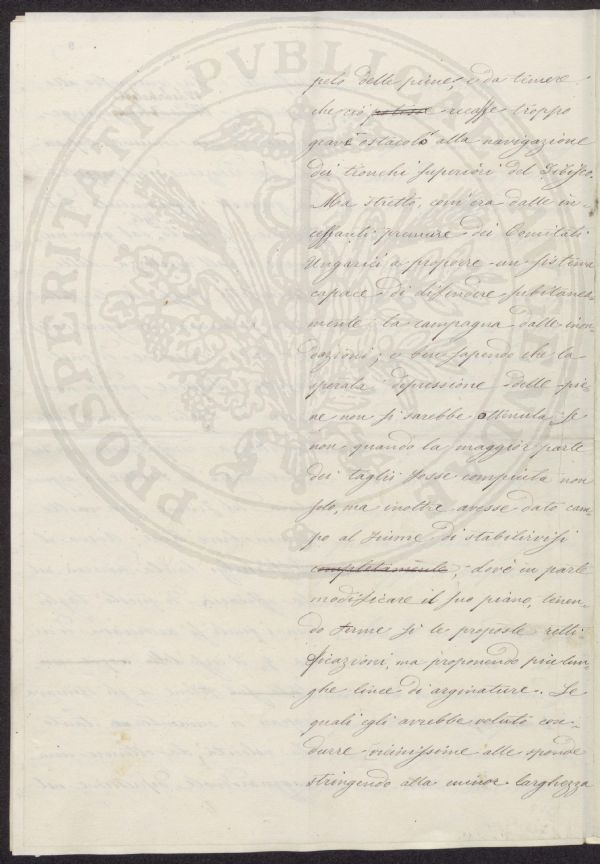 pelo delle piene, è da temere
che ciò potesse recasse troppo
grave ostacolo alla navigazione
dei tronchi superiori del Tibisco.
Ma stretto, com'era dalle in-
cessanti premure dei Comitati
Ungarici a proporre un sistema
capace di difendere subitanea-
mente la campagna dalle inon-
dazioni; e ben sapendo che la
sperata depressione delle pie-
ne non si sarebbe ottenuta se
non quando la maggior parte
dei tagli fosse compiuta non
solo, ma inoltre avesse dato cam-
po al fiume di stabilirvisi
completamente; dovè in parte
modificare il suo piano, tenen-
do ferme sì le proposte retti-
ficazioni, ma proponendo più lun-
ghe linee di arginature. Le
quali egli avrebbe voluto con-
durre vicinissime alle sponde
stringendo alla minor larghezza
PROSPERITATI PUBLICAE